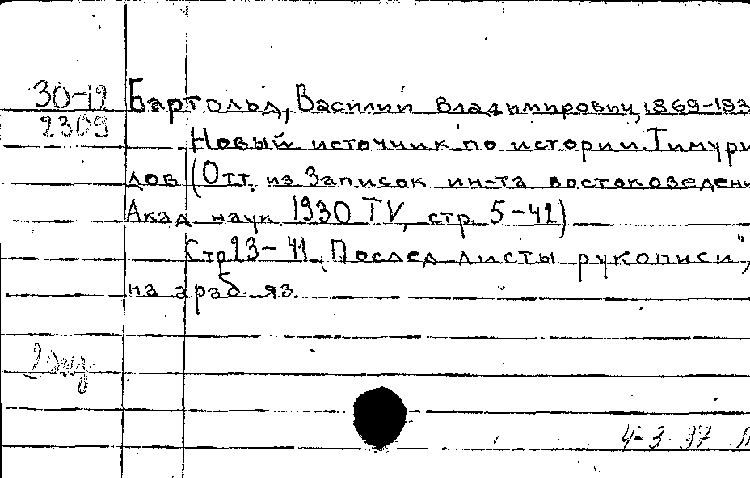 30-12
2309
Бартольд, Василий Владимирович, 1869-193
Новый источник по истории Тимури
дов (Отт. из Записок ин-та востоковедени
Акад. наук 1930 TV, стр. 5-42)
Стр 23-41 „Послед. листы рукописи",
на араб. яз.
2 экз.
4-3-37